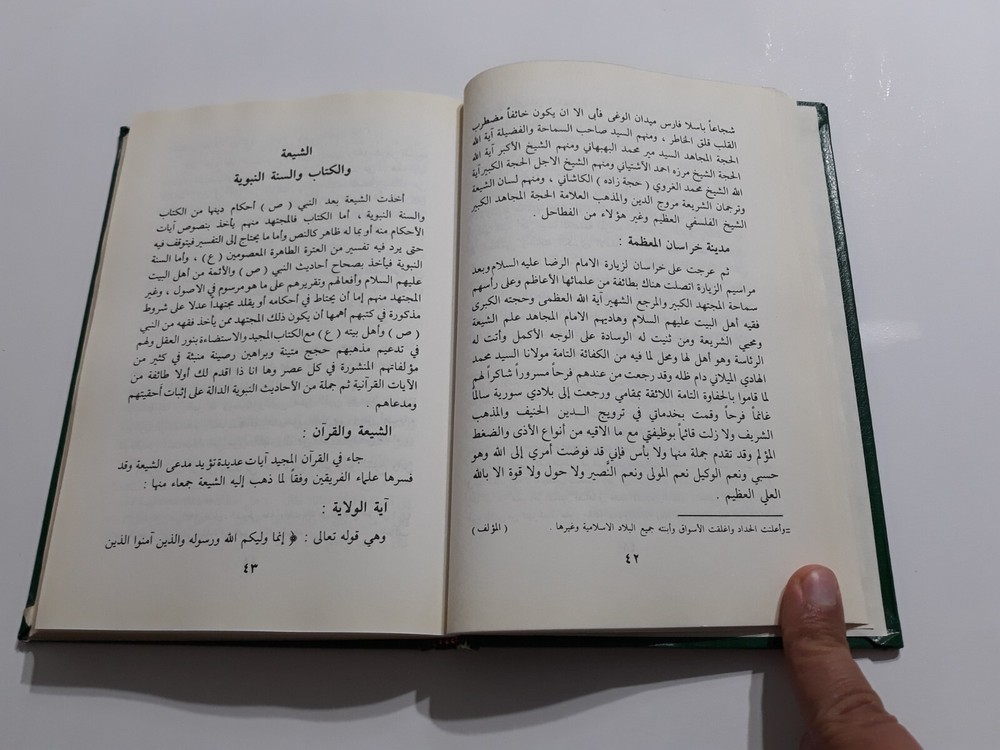 شجاعاً باسلا فارس ميدان الوغى فأبى الا ان يكون خائفاً مضطرب
القلب قلق الخاطر ، ومنهم السيد صاحب السماحة والفضيلة آية الله
الحجة المجاهد السيد مير محمد البهبهاني ومنهم الشيخ الأكبر آية الله
الحجة الشيخ مرزه احمد الآشتياني ومنهم الشيخ الاجل الحجة الكبير آية
الله الشيخ محمد الغروي ( حجة زاده ) الكاشاني ، ومنهم لسان الشيعة
وترجمان الشريعة مروج الدين والمذهب العلامة الحجة المجاهد الكبير
الشيخ الفلسفي العظيم وغير هؤلاء من الفطاحل .
مدينة خراسان المعظمة :
ثم عرجت على خراسان لزيارة الامام الرضا عليه السلام وبعد
مراسيم الزيارة اتصلت هناك بطائفة من علمائها الأعاظم وعلى رأسهم
سماحة المجتهد الكبير والمرجع الشهير آية الله العظمى وحجته الكبرى
فقيه أهل البيت عليهم السلام وهاديهم الامام المجاهد علم الشيعة
ومحيي الشريعة ومن ثنيت له الوسادة على الوجه الأكمل وأتت له
الرئاسة وهو أهل لها ومحل لما فيه من الكفائة التامة مولانا السيد محمد
الهادي الميلاني دام ظله وقد رجعت من عندهم فرحاً مسروراً شاكراً لهم
لما قاموا بالحفاوة التامة اللائقة بمقامي ورجعت إلى بلادي سورية سالماً
غانماً فرحاً وقمت بخدماتي في ترويج الــدين الحنيف والمذهب
الشريف ولا زلت قائماً بوظيفتي مع ما الاقيه من أنواع الأذى والضغط
المؤلم وقد تقدم جملة منها ولا بأس فإني قد فوضت أمري إلى الله وهو
حسبي ونعم الوكيل نعم المولى ونعم النَّصير ولا حول ولا قوة الا بالله
العلي العظيم .
=وأعلنت الحداد واغلقت الأسواق وأبنته جميع البلاد الاسلامية وغيرها . ( المؤلف )
٤٢
الشيعة
والكتاب والسنة النبوية
أخذت الشيعة بعد النبي ( ص ) أحكام دينها من الكتاب
والسنة النبوية ، أما الكتاب فالمجتهد منهم يأخذ بنصوص آيات
الأحكام منه أو بما له ظاهر كالنص وأما ما يحتاج إلى التفسير فيتوقف فيه
حتى يرد فيه تفسير من العترة الطاهرة المعصومين ( ع ) ، وأما السنة
النبوية فيأخذ بصحاح أحاديث النبي ( ص ) والأئمة من أهل البيت
عليهم السلام وأفعالهم وتقريرهم على ما هو مرسوم في الاصول ، وغير
المجتهد منهم إما أن يحتاط في أحكامه أو يقلد مجتهدا عدلا على شروط
مذكورة في كتبهم أهمها أن يكون ذلك المجتهد ممن يأخذ فقهه من النبي
( ص ) وأهل بيته ( ع ) مع الكتاب المجيد والاستضاءة بنور العقل ولهم
في تدعيم مذهبهم حجج متينة وبراهين رصينة منبثة في كثير من
مؤلفاتهم المنشورة في كل عصر وها انا ذا اقدم لك أولا طائفة من
الآيات القرآنية ثم جملة من الأحاديث النبوية الدالة على إثبات أحقيتهم
ومدعاهم .
الشيعة والقرآن :
جاء في القرآن المجيد آيات عديدة تؤيد مدعى الشيعة وقد
فسرها علماء الفريقين وفقاً لما ذهب إليه الشيعة جمعاء منها :
آية الولاية :
وهي قوله تعالى : ﴿ إنما وليكم الله ورسوله والذين آمنوا الذين
٤٣